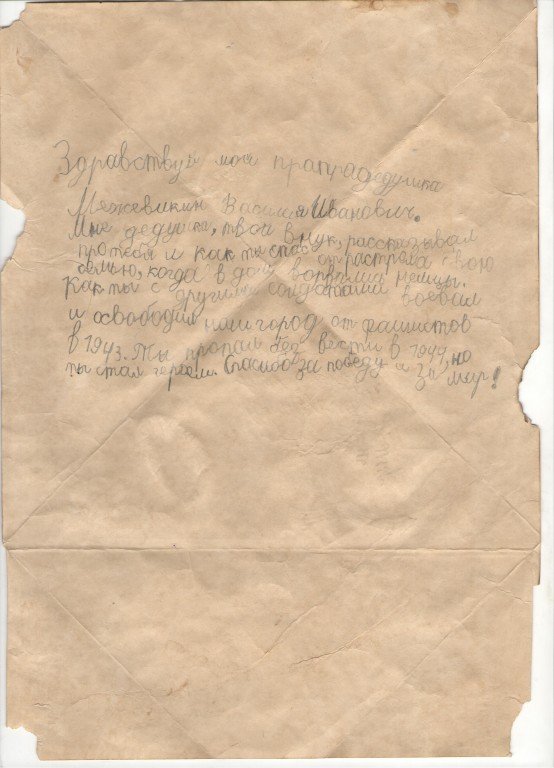 Здравствуй мой прапрадедушка
Межевикин Василя Иванович.
Мне дедушка, твой внук, рассказывал
про тебя и как ты спас от растрела свою
семью, когда в дом ворвулись немцы.
Как ты с другими солдатами воевал
и освободил наш город от фашистов
в 1943. Ты пропал без вести в 1944, но
ты стал героем. Спасибо за победу и за мир!